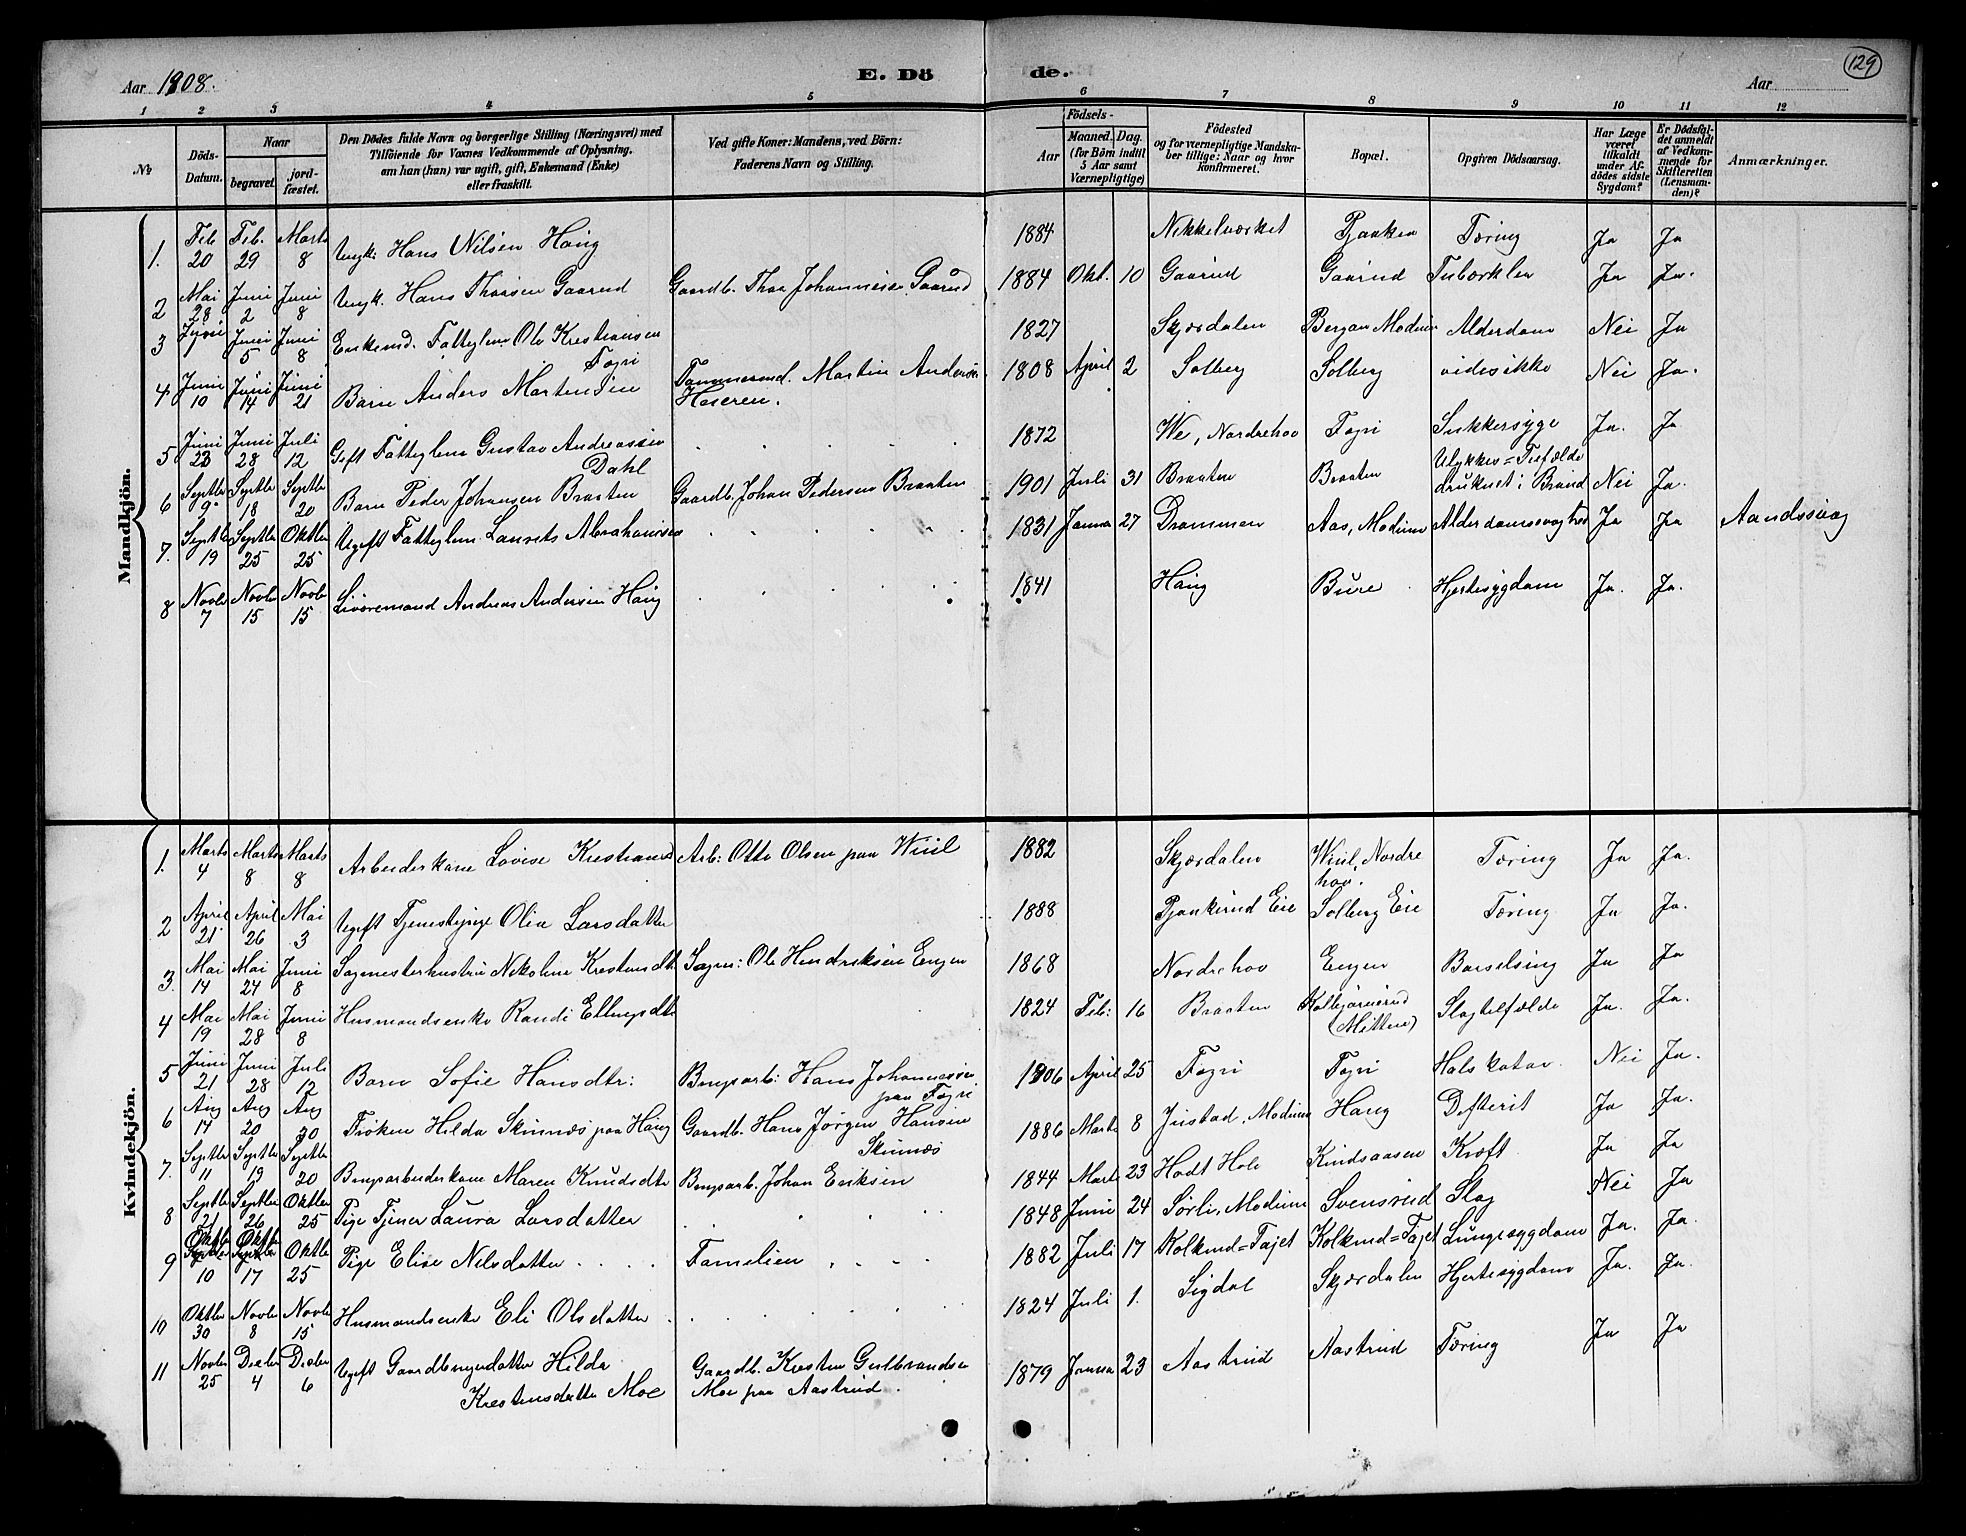 Aar 1908.
E. Dö de.
Aar
129
1 2 3 4 5 6 7 8 9 10 11 12
№
Döds-Datum.
Naar
begravet.
jordfæstet.
Den Dödes fulde Navn og borgerlige Stilling (Næringsvei) med
Tilföiende for Voxnes Vedkommende af Oplysning,
om han (hun) var ugift, gift, Enkemand (Enke)
eller fraskilt.
Ved gifte Koner: Mandens, ved Börn:
Faderens Navn og Stilling.
Födsels-
Aar
Maaned. Dag.
(for Börn indtil
5 Aar samt
Værnepligtige)
Födested
og for værnepligtige Mandska-
ber tillige: Naar og hvor
konfirmeret.
Bopæl.
Opgiven Dödsaarsag.
Har Læge
været
tilkaldt
under Af-
dödes sidste
Sygdom?
Er Dödsfal-
det anmeldt
af Vedkom-
mende for
Skifteretten
(Lensman-
den)?
Anmærkninger.
Mandkjön.
1. Feb 20 Feb. 29 Marts 8 Ungk. Hans Nilsen Haug 1884 Nikkelværket Pjaaken Tæring Ja Ja
2 Mai 28 Juni 2 Juni 8 Ungk. Hans Thorsen Gaarud Gaardb. Thor Johannesen Gaarud 1884 Okt. 10 Gaarud Gaarud Tuberkler Ja Ja.
3 Juni 5 Juni 8 Enkemd. Fattiglem Ole Kristiansen Fogri 1827 Skjærdalen Bergan Modum Alderdom Nei Ja
4 Juni 10 Juni 14 Juni 21 Barn Anders Martinsen Tømmermd. Martin Andersen Haseren. 1908 April 2 Solberg Solberg vides ikke Nei Ja.
5 Juni 23 Juni 28 Juli 12 Gift Fattiglem Gustav Andreassen Dahl 1872 We, Nordrehov Fogri Sukkersyge Ja. Ja
6 Septbr 9 Septbr 18 Septbr 20 Barn Peder Johansen Braaten Gaardb. Johan Pedersen Braaten 1901 Juli 31 Braaten Braaten Ulykkes=Tilfælde druknet i Brønd Nei Ja.
7. Septbr 19 Septbr 25 Oktbr 25 Ugift Fattiglem Laurits Abrahamsen 1831 Januar 27 Drammen Aas, Modum Alderdomssvaghed Ja Ja Aandssvag
8 Novbr 7 Novbr 15 Novbr 15 Livøremand Andreas Andersen Haug 1841 Haug Bure Hjertesygdom Ja. Ja.
Kvindekjön.
1. Marts 4 Marts 8 Marts 8 Arbeiderkone Lovise Kristiansd Arb: Otto Olsen paa Wiul 1882 Skjærdalen Wiul Nordrehov. Tæring Ja Ja.
2 April 21 April 26 Mai 3 Ugift Tjenestepige Olia Larsdatter 1888 Pjaakerud Eie Solberg Eie Tæring Ja Ja.
3. Mai 14 Mai 24 Juni 8 Sagmesterhustru Nikoline Krestensdtr Sagm: Ole Hendriksen Engen 1868 Nordrehov Engen Barselseng Ja Ja
4 Mai 19 Mai 28 Juni 8 Husmandsenke Randi Ellingsdtr 1824 Feb: 16 Braaten Kolbjørnerud (Mitten) Slagtilfælde Ja. Ja.
5 Juni 21 Juni 28 Juli 12 Barn Sofie Hansdtr: Bruparb: Hans Johannessen paa Fogri 1906 April 25 Fogri Fogri Halskatar. Nei Ja.
6 Aug 14 Aug 20 Aug 30 Frøken Hilda Skinnæs paa Haug Gaardb. Hans Jørgen Hansen Skinnæs 1886 Marts 8 Justad, Modum Haug Difterit Ja Ja.
7. Septbr 11 Septbr 19 Septbr 20 Brugsarbeiderkone Maren Knudsdtr Brugsarb. Johan Eriksen 1844 Mart 23 Hodt Hole Knudsaasen Kræft Ja Ja
8 Septbr 21 Septbr 26 Oktbr 25 Pige Tjener Laura Larsdatter 1848 Juni 24 Sørli, Modum Svensrud Slag Nei Ja
9 Oktbr 10 Oktbr 17 Oktbr 25 Pige Elise Nilsdatter Familien 1882 Juli 17 Kolkrud=Fajet Kolkrud=Fajet Lungesygdom Ja. Ja.
10 Oktbr 30 Novbr 8 Novbr 15 Husmandsenke Eli Olsdatter 1824 Juli 1. Sigdal Skjærdalen Hjertesygdom Ja. Ja.
11 Novbr 25 Decbr 4 Decbr 6 Ugift Gaardbrugerdatter Hilda Krestensdatter Moe Gaardb. Kresten Gulbrandsen Moe paa Aastrud. 1879 Januar 23 Aastrud Aastrud Tæring Ja Ja